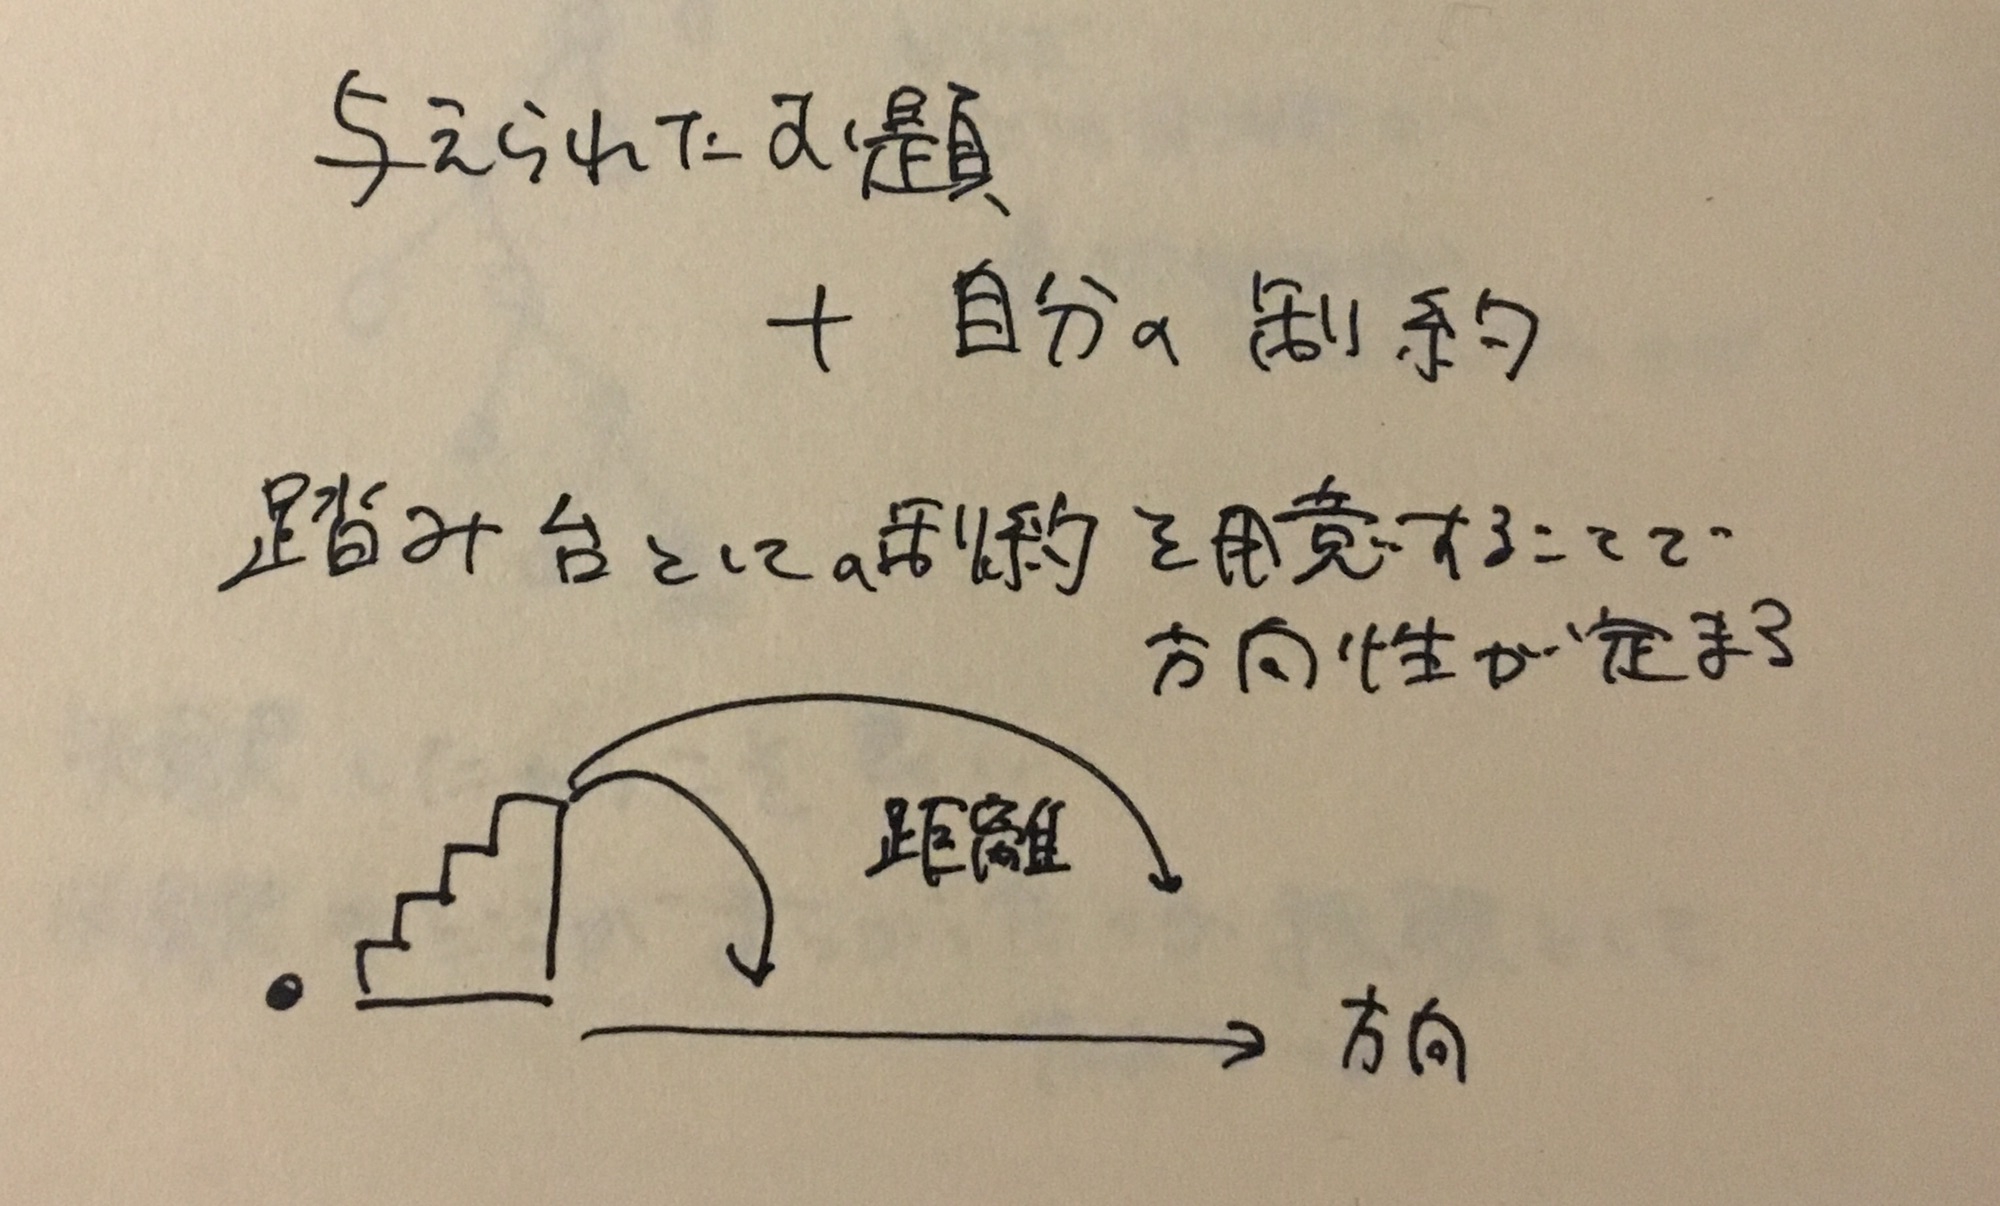 与えられたお題
＋ 自分の制約
踏み台としての制約を用意することで
方向性が定まる
距離
方向